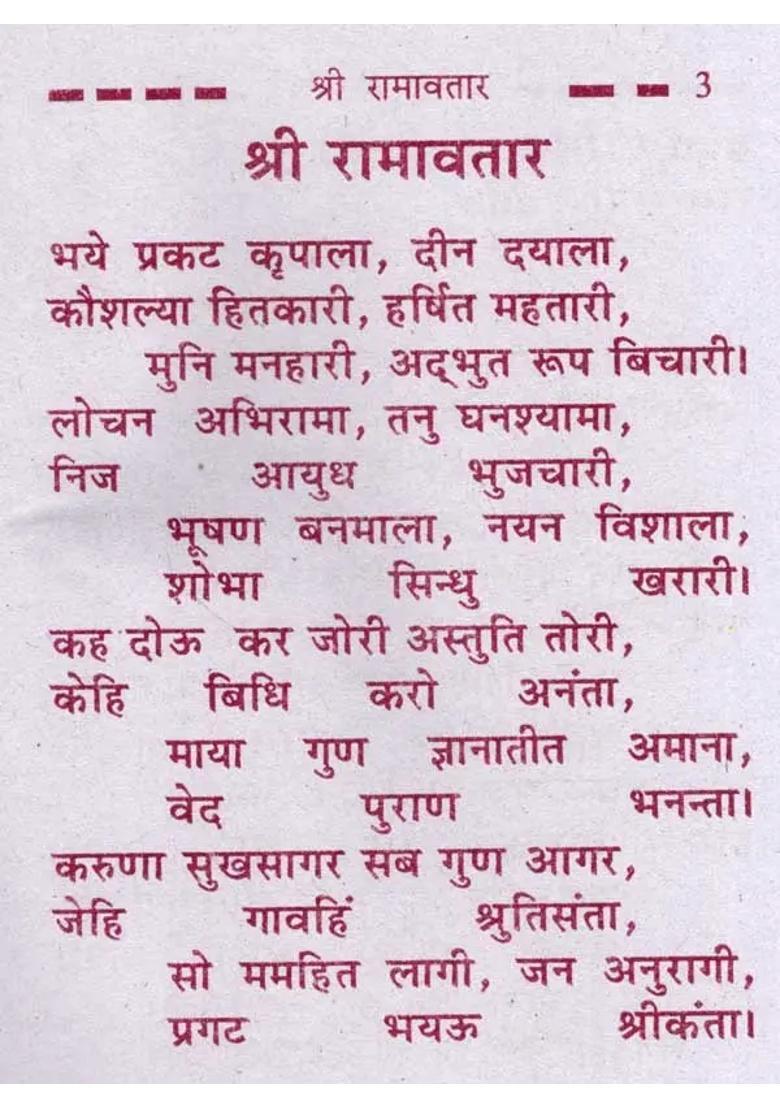 श्री रामावतार 3
श्री रामावतार
भये प्रकट कृपाला, दीन दयाला,
कौशल्या हितकारी, हर्षित महतारी,
मुनि मनहारी, अद्भुत रूप बिचारी।
लोचन अभिरामा, तनु घनश्यामा,
निज आयुध भुजचारी,
भूषण बनमाला, नयन विशाला,
शोभा सिन्धु खरारी।
कह दोऊ कर जोरी अस्तुति तोरी,
केहि बिधि करो अनंता,
माया गुण ज्ञानातीत अमाना,
वेद पुराण भनन्ता।
करुणा सुखसागर सब गुण आगर,
जेहि गावहिं श्रुतिसंता,
सो ममहित लागी, जन अनुरागी,
प्रगट भयऊ श्रीकंता।